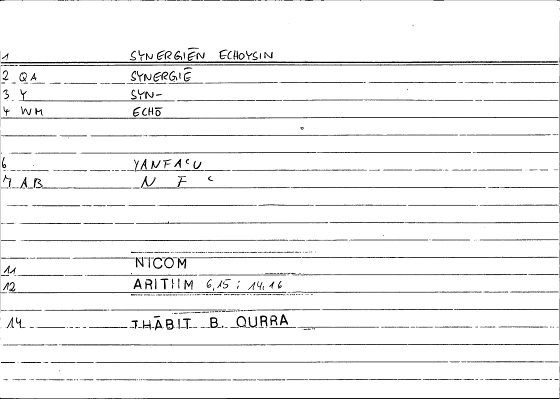 1 SYNERGIĒN ECHOYSIN
2 QA SYNERGIĒ
3 Y SYN-
4 WM ECHŌ
6 YANFAᶜU
7 AB N F ᶜ
11 NICOM
12 ARITIIM 6,15 ; 14,16
14 THĀBIT B. QURRA